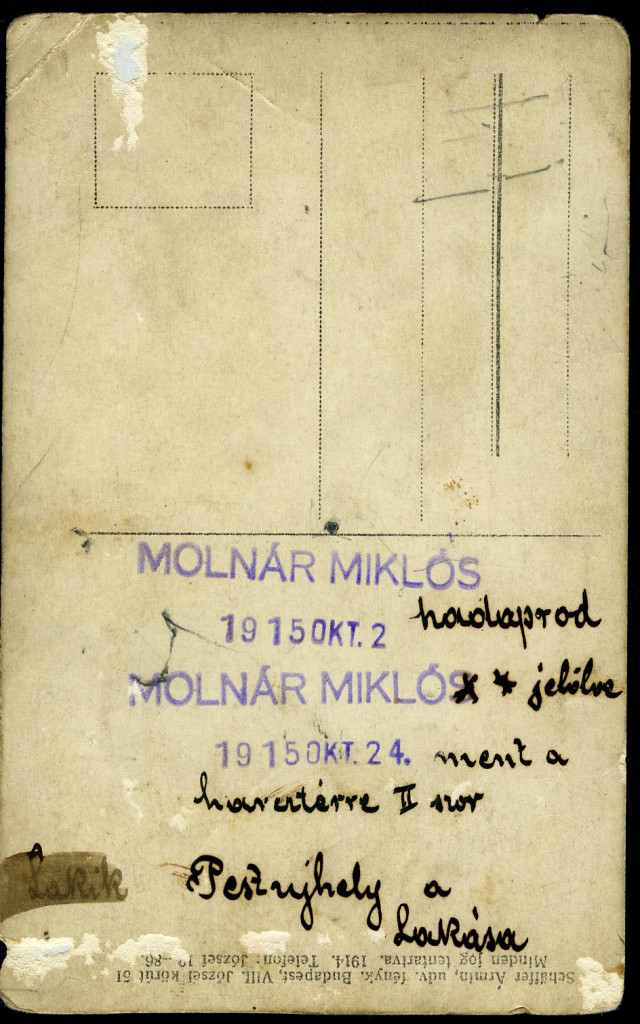 MOLNÁR MIKLÓS
1915 OKT. 2 hadaprod
MOLNÁR MIKLÓS x x jelölve
1915 OKT. 24. ment a
harcztérre II szor
Lakik Pestujhely a
Lakása
Schäffer Ármin, udv. fényk. Budapest, VIII. József körút 51
Minden jog tentartva. 1914. Telefon: József 12—86.